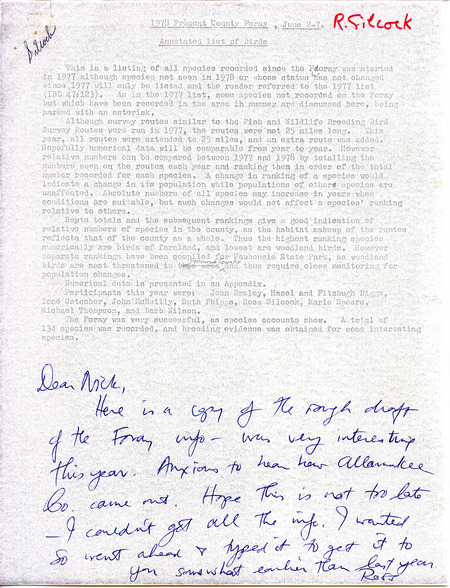 1978 Fremont County Foray, June 2-7.
R. Silcock
Silcock
Annotated list of Birds
This is a listing of all species recorded since the Foray was started
in 1977 although species not seen in 1978 or whose status has not changed
since 1977 will only be listed and the reader referred to the 1977 list
(IBL 47:123). As in the 1977 list, some species not recorded on the Foray
but which have been recorded in the area in summer are discussed here, being
marked with an asterisk.
Although survey routes similar to the Fish and Wildlife Breeding Bird
Survey Routes were run in 1977, the routes were not 25 miles long. This
year, all routes were extended to 25 miles, and an extra route was added.
Hopefully numerical data will be comparable from year to year. However
relative numbers can be compared between 1977 and 1978 by totalling the
numbers seen on the routes each year and ranking them in order of the total
number recorded for each species. A change in ranking of a species would
indicate a change in its population while populations of other species are
unaffected. Absolute numbers of all species may increase in years when
conditions are suitable, but such changes would not affect a species' ranking
relative to others.
Route totals and the subsequent rankings give a good indication of
relative numbers of species in the county, as the habitat makeup of the routes
reflects that of the county as a whole. Thus the highest ranking species
numerically are birds of farmland, and lowest are woodland birds. However
separate rankings have been compiled for Waubonsie State Park, as woodland
birds are most threatened in Fremont County and thus require close monitoring for
population changes.
Numerical data is presented in an Appendix.
Participants this year were: Jean Braley, Hazel and Fitzhugh Diggs,
Ione Getscher, John McNeilly, Ruth Phipps, Ross Silcock, Marie Spears,
Michael Thompson, and Barb Wilson.
The Foray was very successful, as species accounts show. A total of
134 species was recorded, and breeding evidence was obtained for some interesting
species.
Dear Nick,
Here is a copy of the rough draft
of the Foray info - was very interesting
this year. Anxious to hear how Allamakee
Co. came out. Hope this is not too late
- I couldn't get all the info. I wanted
so went ahead & typed it to get it to
you somewhat earlier than last year
Ross